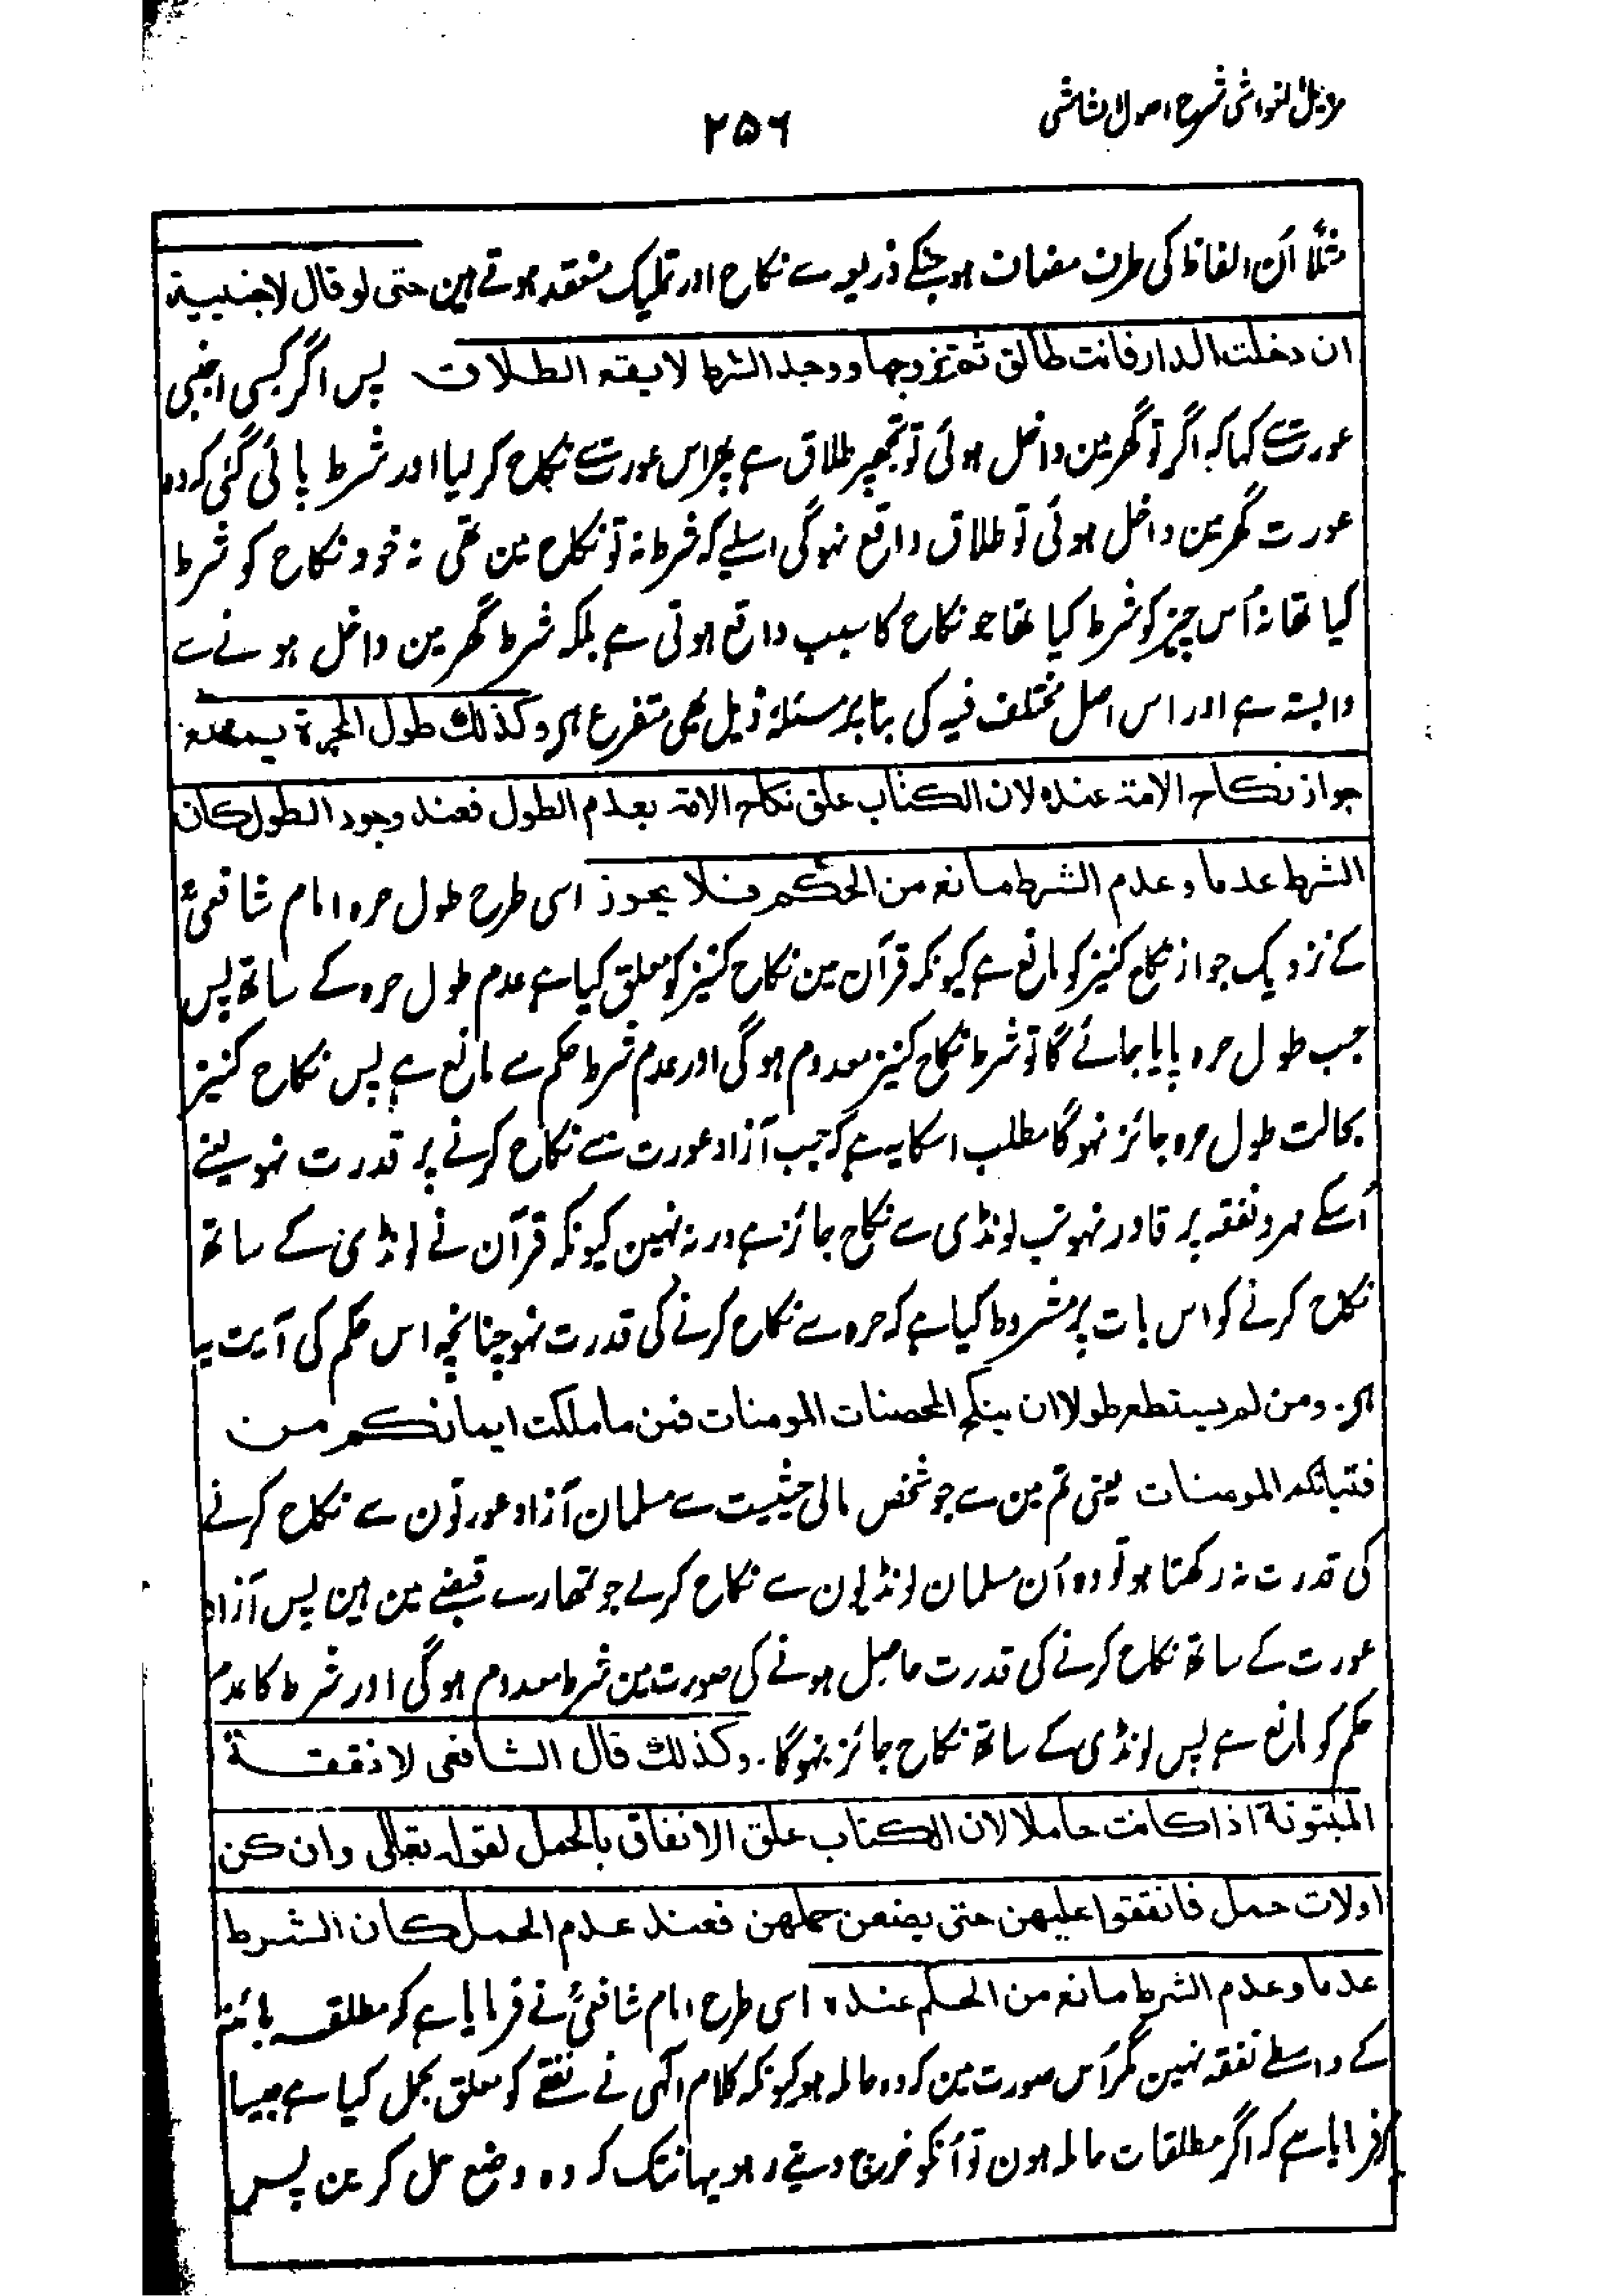 مزیل الغواشی شرح اصول الشاشی
۲۵۶
مثلًا اُن الفاظ کی طرف مضاف ہو جنکے ذریعہ سے نکاح اور تملیک منعقد ہوتے ہین حتی لو قال لاجنبیة
ان دخلت الدار فانت طالق ثم تزوجها ووجد الشرط لا یقع الطلاق پس اگر کسی اجنبی
عورت سے کہا کہ اگر تو گھر مین داخل ہوئی تو تجھپر طلاق ہے پھر اس عورت سے نکاح کر لیا اور شرط پائی گئی کہ وہ
عورت گھر مین داخل ہوئی تو طلاق واقع نہوگی اسلیے کہ شرط نہ تو نکاح مین تھی نہ خود نکاح کو شرط
کیا تھا نہ اُس چیز کو شرط کیا تھا جو نکاح کا سبب واقع ہوتی ہے بلکہ شرط گھر مین داخل ہونے سے
وابستہ ہے اور اس اصل مختلف فیہ کی بنا پر مسئلۂ ذیل بھی متفرع ہی وکذلك طول الحرة یمنع
جواز نكاح الامة عنده لان الكتاب علق نكاح الامة بعدم الطول فعند وجود الطول كان
الشرط عدما وعدم الشرط مانع من الحكم فلا یجوز اسی طرح طول حرہ امام شافعیؒ
کے نزدیک جواز نکاح کنیز کو مانع ہے کیونکہ قرآن مین نکاح کنیز کو معلق کیا ہے عدم طول حرہ کے ساتھ پس
جب طول حرہ پایا جائے گا تو شرط نکاح کنیز معدوم ہوگی اور عدم شرط حکم سے مانع ہے پس نکاح کنیز
بحالت طول حرہ جائز نہوگا مطلب اسکا یہ ہے کہ جب آزاد عورت سے نکاح کرنے پر قدرت نہو یعنے
اُسکے مہر و نفقہ پر قادر نہو تب لونڈی سے نکاح جائز ہے ورنہ نہین کیونکہ قرآن نے لونڈی کے ساتھ
نکاح کرنے کو اس بات پر مشروط کیا ہے کہ حرہ سے نکاح کرنے کی قدرت نہو چنانچہ اس حکم کی آیت یہ
ہی۔ ومن لم یستطع طولا ان ینکح المحصنات المومنات فمن ما ملکت ایمانکم من
فتیاتکم المومنات یعنی تم مین سے جو شخص مالی حیثیت سے مسلمان آزاد عورتون سے نکاح کرنے
کی قدرت نہ رکھتا ہو تو وہ اُن مسلمان لونڈیون سے نکاح کرلے جو تمھارے قبضے مین ہین پس آزاد
عورت کے ساتھ نکاح کرنے کی قدرت حاصل ہونے کی صورت مین شرط معدوم ہوگی اور شرط کا عدم
حکم کو مانع ہے پس لونڈی کے ساتھ نکاح جائز نہوگا۔ وکذلك قال الشافعی لا نفقة
المبتوتة اذا كانت حاملا لان الكتاب علق الانفاق بالحمل لقوله تعالی وان كن
اولات حمل فانفقوا علیهن حتی یضعن حملهن فعند عدم الحمل كان الشرط
عدما وعدم الشرط مانع من الحكم عنده اسی طرح امام شافعیؒ نے فرمایا ہے کہ مطلقہ بائنہ
کے واسطے نفقہ نہین مگر اُس صورت مین کہ وہ حاملہ ہو کیونکہ کلام الٰہی نے نفقے کو معلق بحمل کیا ہے جیسا
کہ فرمایا ہے کہ اگر مطلقات حاملہ ہون تو اُنکو خرچ دیتے رہو یہانتک کہ وہ وضع حمل کرین پس